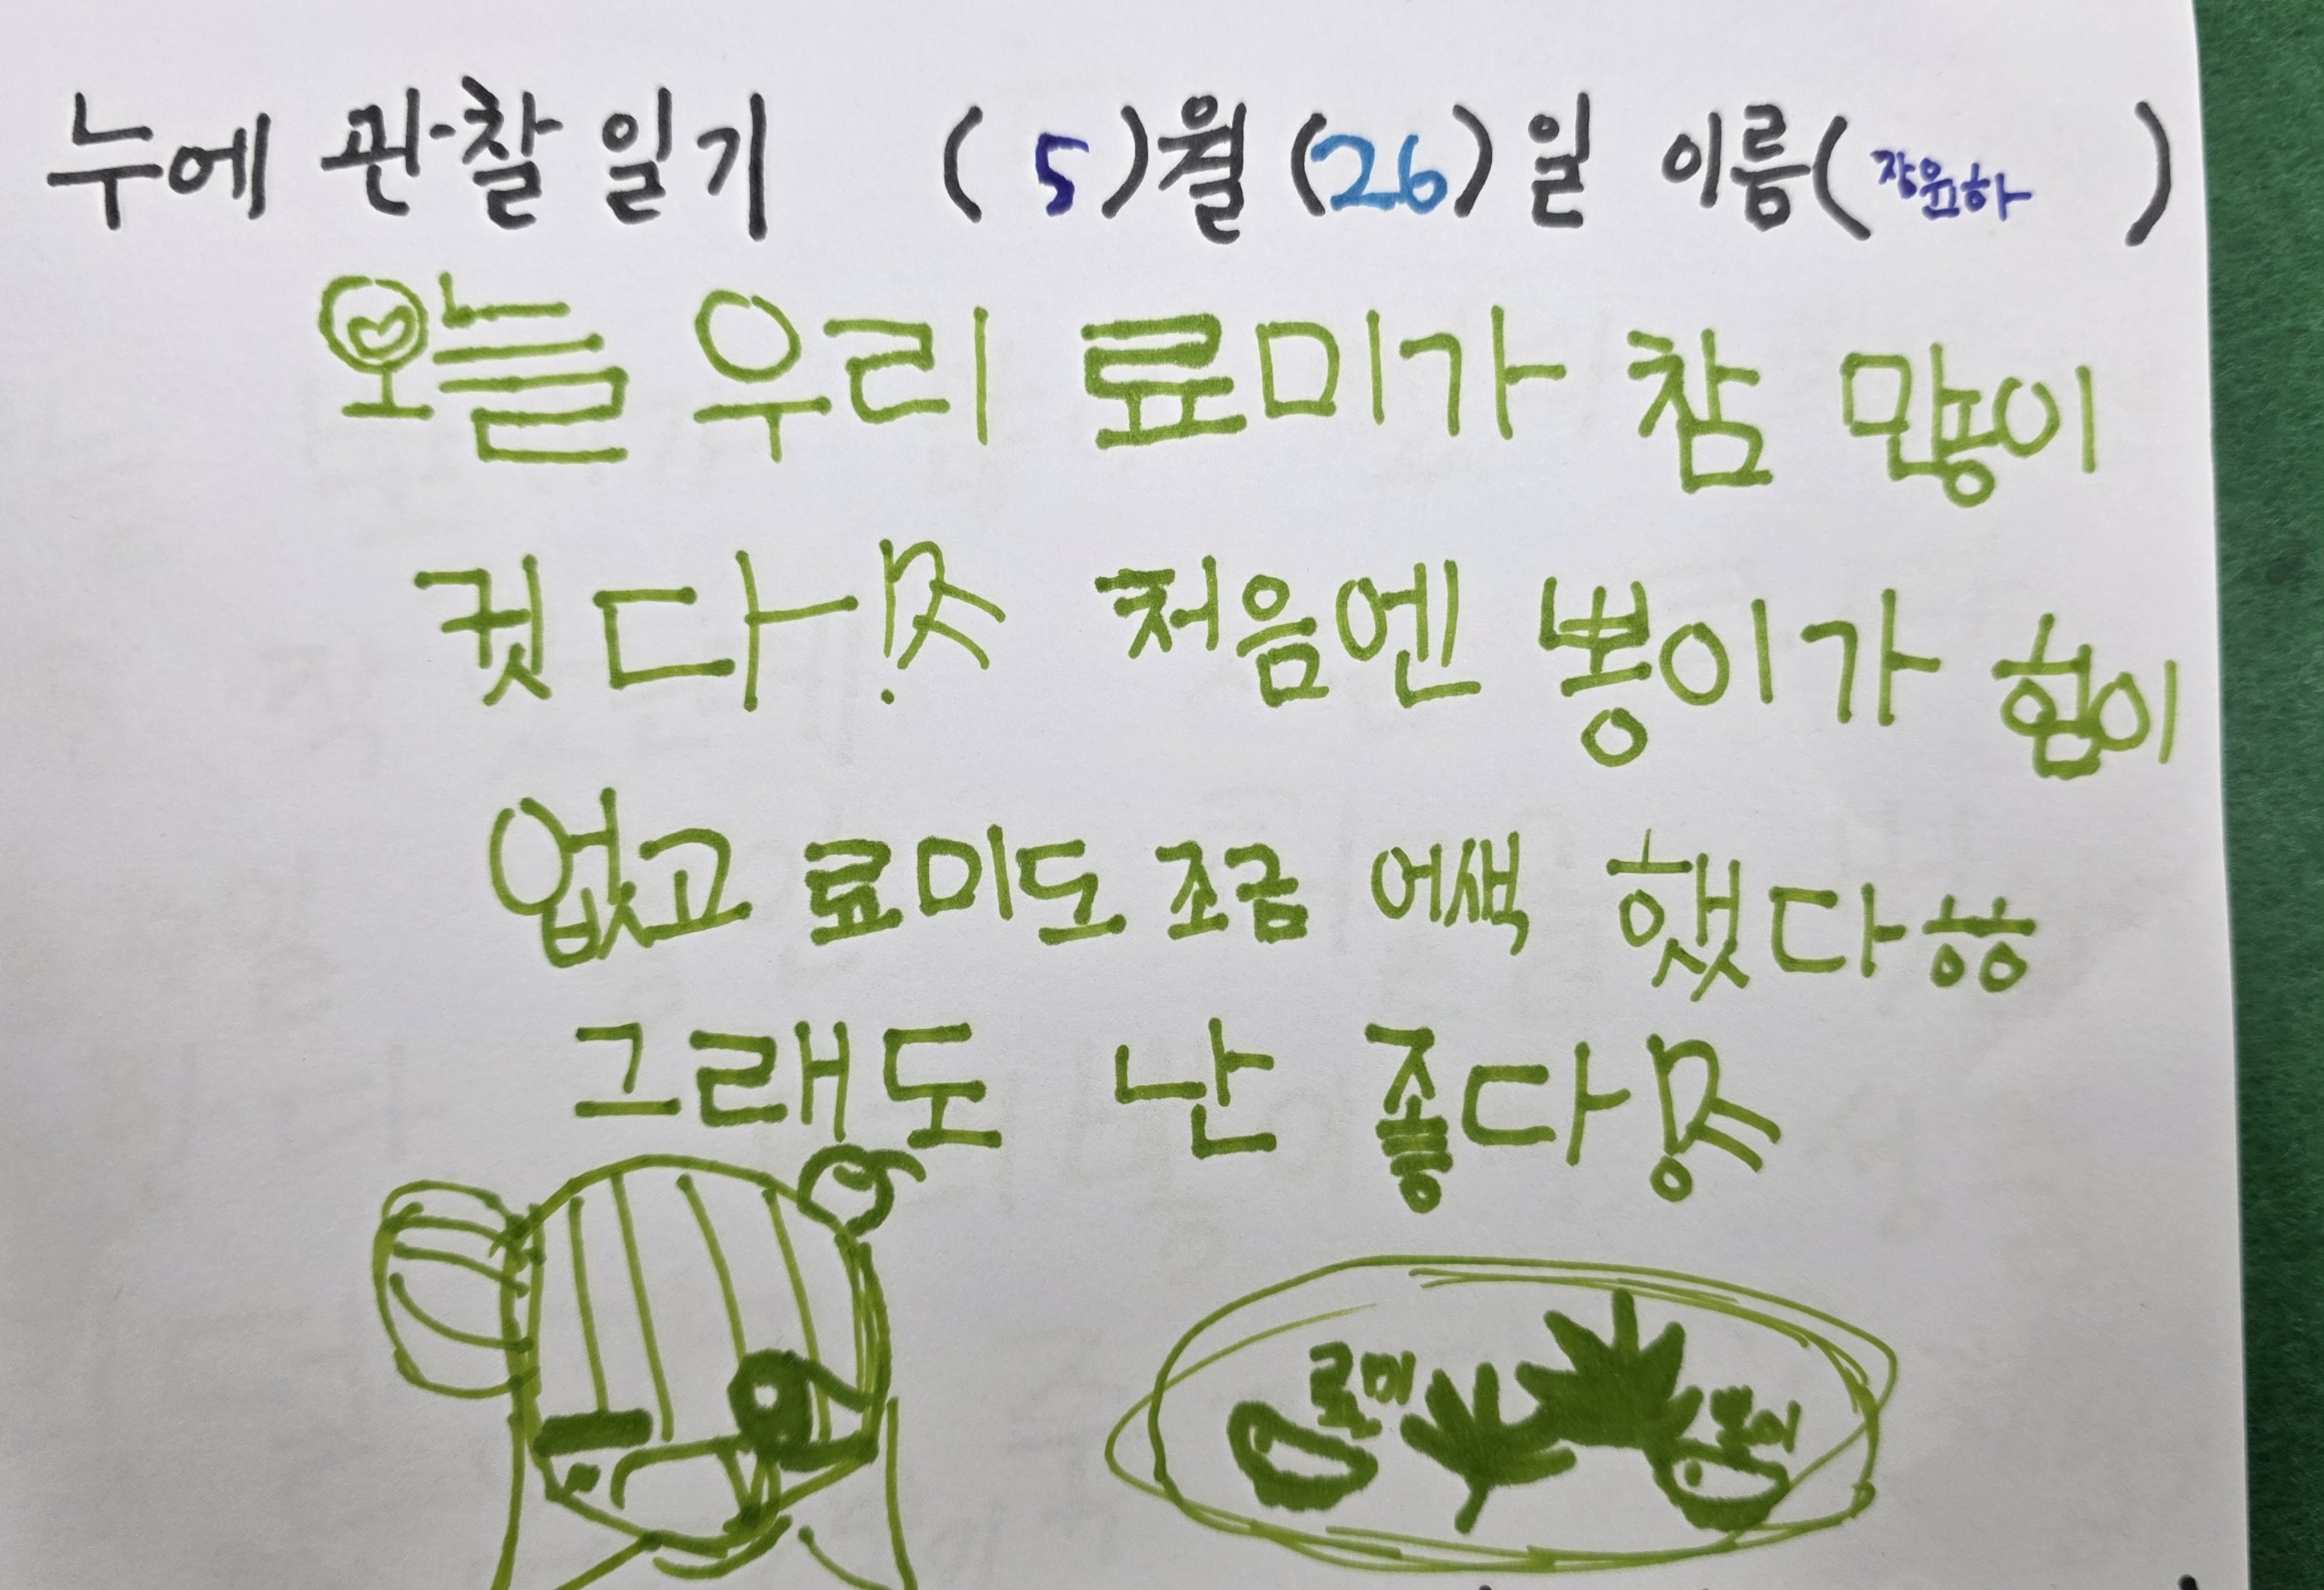 누에 관찰일기 (5)월 (26)일 이름(장원하)
오늘 우리 료미가 참 많이
컷다! 처음엔 뽕이가 힘이
없고 료미도 조금 어색 했다ㅎㅎ
그래도 난 좋다
료미
뽕이